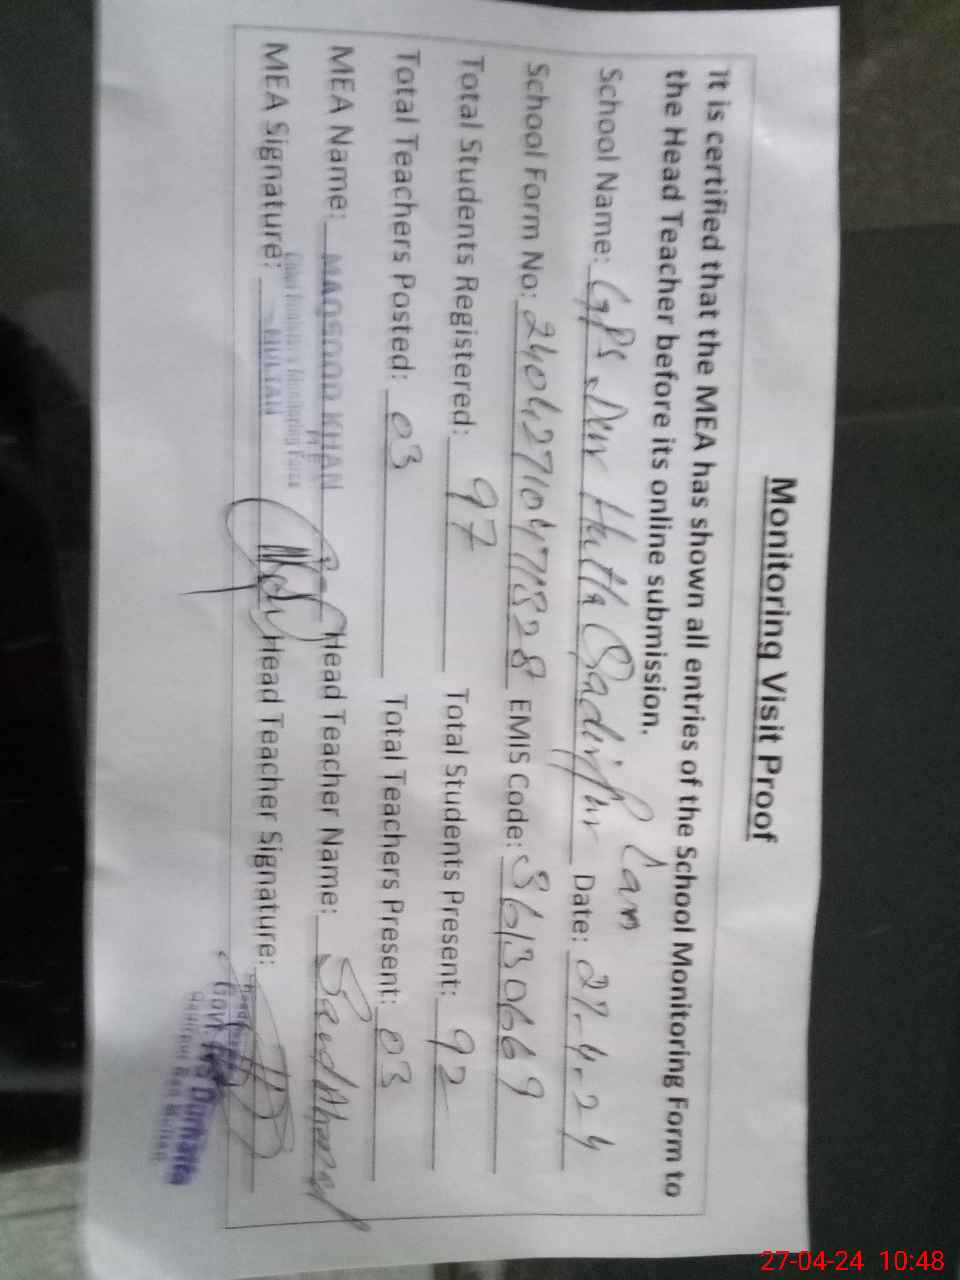 Monitoring Visit Proof
It is certified that the MEA has shown all entries of the School Monitoring Form to
the Head Teacher before its online submission.
School Name: GPS Dur Hatta Qadirpur Ran Date: 27-4-24
School Form No: EMIS Code: 36130669
Total Students Registered: 97 Total Students Present: 92
Total Teachers Posted: 03 Total Teachers Present: 03
MEA Name: MAQSOOD KHAN Head Teacher Name: Saeed Ahmad
MEA Signature: MULTAN Head Teacher Signature:
27-04-24 10:48